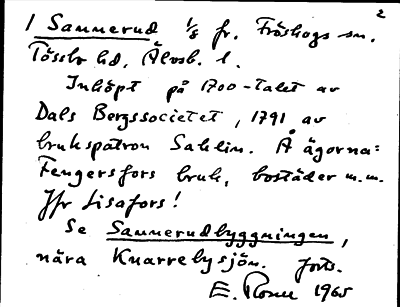 2
1 Sannerud 1/8 fr. Fröskogs sn.
Tössbo hd, Älvsb. l.
Inköpt på 1700-talet av
Dals Bergssocietet, 1791 av
brukspatron Sahlin. Å ägorna:
Fengersfors bruk, bostäder m.m.
Jfr Lisafors!
Se Sannerudbyggningen,
nära Knarrebysjön. forts.
E. 1965